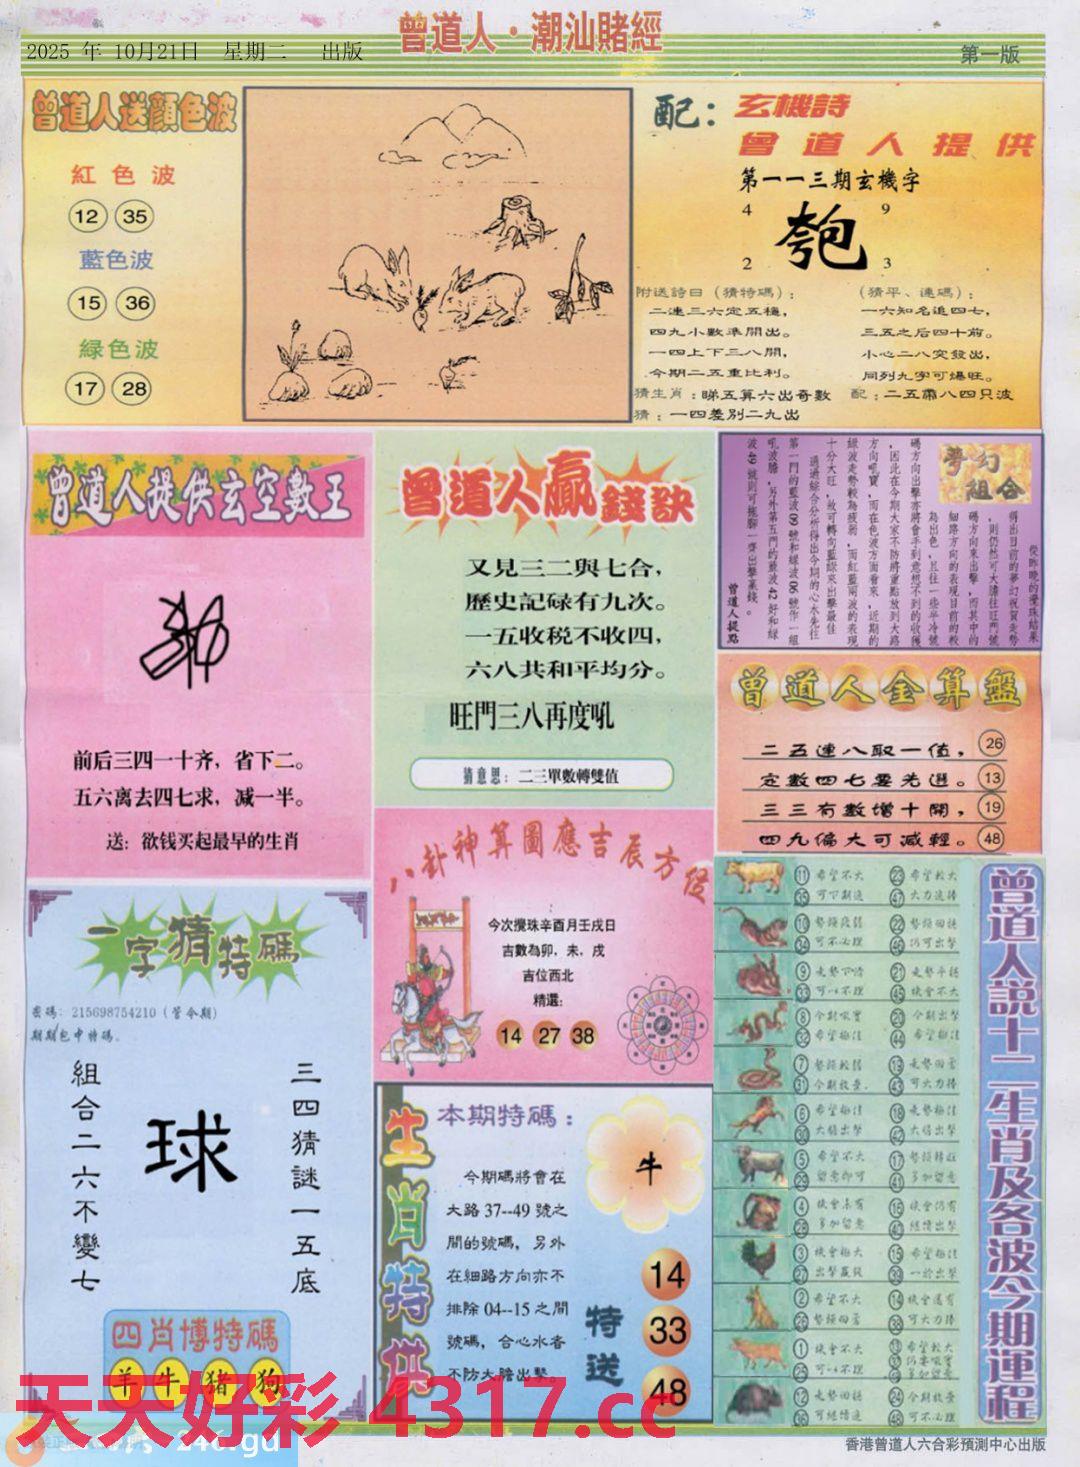 曾道人·潮汕賭經
2025 年 10月21日 星期二 出版
第一版
曾道人送顏色波
紅色波
12 35
藍色波
15 36
緑色波
17 28
配：玄機詩
曾道人提供
第一一三期玄機字
4 9
2 3
附送詩曰（猜特碼）：
二連三六定五穩，
四九小數準開出。
一四上下三八開，
今期二五重比利。
（猜平、連碼）：
一六知名追四七，
三五之后四十前。
小心二八突發出，
同列九字可爆旺。
猜生肖：睇五算六出奇數
配：二五霜八四只波
猜：一四差別二九出
曾道人提供玄空數王
前后三四一十齐，省下二。
五六离去四七求，减一半。
送：欲钱买起最早的生肖
曾道人贏錢訣
又見三二與七合，
歷史記碌有九次。
一五收税不收四，
六八共和平均分。
旺門三八再度吼
猜意思：二三單數轉雙值
夢幻組合
從昨晚的攪珠結果
得出目前的夢幻祝賀走勢
，則仍然可大膽往旺門號
碼方向來出擊，而其中的
細路方向的表現目前的較
為出色，且往一些半冷號
碼方向出擊亦將會手到意想不到的收穫
，因此在今期大家不防將重點放到大路
方向吼寶，而在色波方面看來，近期的
綠波走勢較為疲弱，而紅藍兩波的表現
十分大旺，故可轉向藍綠來出擊最佳
通過綜合分析得出今期的心水先往
第一門的藍波09號和綠波06號作一組
吼波膽，另外第五門的藍波42好和綠
波49號則可拖腳一齊出擊贏錢。
曾道人提點
曾道人金算盤
二五連八取一值， 26
定數四七要先選。 13
三三有數增十開， 19
四九偏大可減輕。 48
八卦神算圖應吉辰方位
今次攪珠辛酉月壬戌日
吉數為卯，未，戌
吉位西北
精選：
14 27 38
一字猜特碼
密碼：215698754210（管今期）
期期包中特碼。
組合二六不變七
球
三四猜謎一五底
四肖博特碼
羊 牛 猪 狗
生肖特供
本期特碼：
牛
今期碼將會在
大路37--49號之
間的號碼，另外
在細路方向亦不
排除04--15之間
號碼，合心水者
不防大膽出擊。
特送
14
33
48
曾道人説十二生肖及各波今期運程
11 希望不大 23 希望較大
35 可下期追 47 大力追捧
10 勢頭疲弱 22 勢頭回揚
34 可不必理 46 仍可出擊
9 走勢下滑 21 走勢平穩
33 可以不理 45 機會不大
8 今期吼實 20 今期出擊
32 希望極佳 44 希望極佳
7 勢頭較弱 19 走勢回窩
31 今期放棄 43 可大力捧
6 希望極佳 18 走勢極佳
30 大膽出擊 42 大膽出擊
5 希望不大 17 勢頭轉旺
29 留意即可 41 多加留意
4 機會未有 16 機會仍有
28 多加留意 40 繼續出擊
3 機會極大 15 希望極佳
27 出擊贏錢 39 一於出擊
2 希望不大 14 機會還有
26 勢頭回窩 38 可大力捧
1 希望不大 13 希望較大
25 可以不理
12 走勢回揚 24 今期放棄
36 可繼續追 48 可不必理
天天好彩 4317.cc
246.gd
香港曾道人六合彩預測中心出版